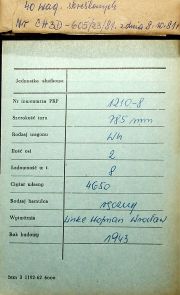 40 wag. skreślonych
Nr CH3D-605/23/81 z dnia 8.10.81r
Jednostka służbowa
Nr inwentarza PKP 1210-8
Szerokość toru 785 mm
Rodzaj wagonu Wh
Ilość osi 2
Ładowność w t 8
Ciężar własny 4650
Rodzaj hamulca ręczny
Wytwórnia Linke Hofman Wrocław
Rok budowy 1943